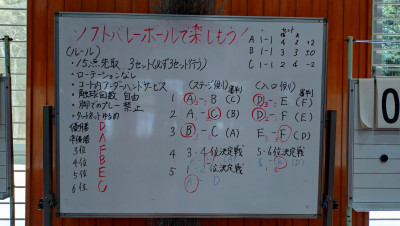 ソフトバレーボールで楽しもう!
セット
A 1-1 4 2 +2
B 1-1 3 3 ±0
C 1-1 2 4 -2
(ルール)
・15点先取 3セット(必ず3セット行う)
・ローテーションなし
・コート内アンダーハンドサービス
・触球回数 自由
・脚でのプレー 禁止
・タッチネット
優勝 D
準優勝 A
3位 F
4位 B
5位 E
6位 C
(ステージ側) 審判
1 A - B (C)
2 A - C (B)
3 B - C (A)
4 3・4位決定戦
5 1・2位決定戦
A - D
(入口側) 審判
D - E (F)
D - F (E)
E - F (D)
5・6位決定戦
0